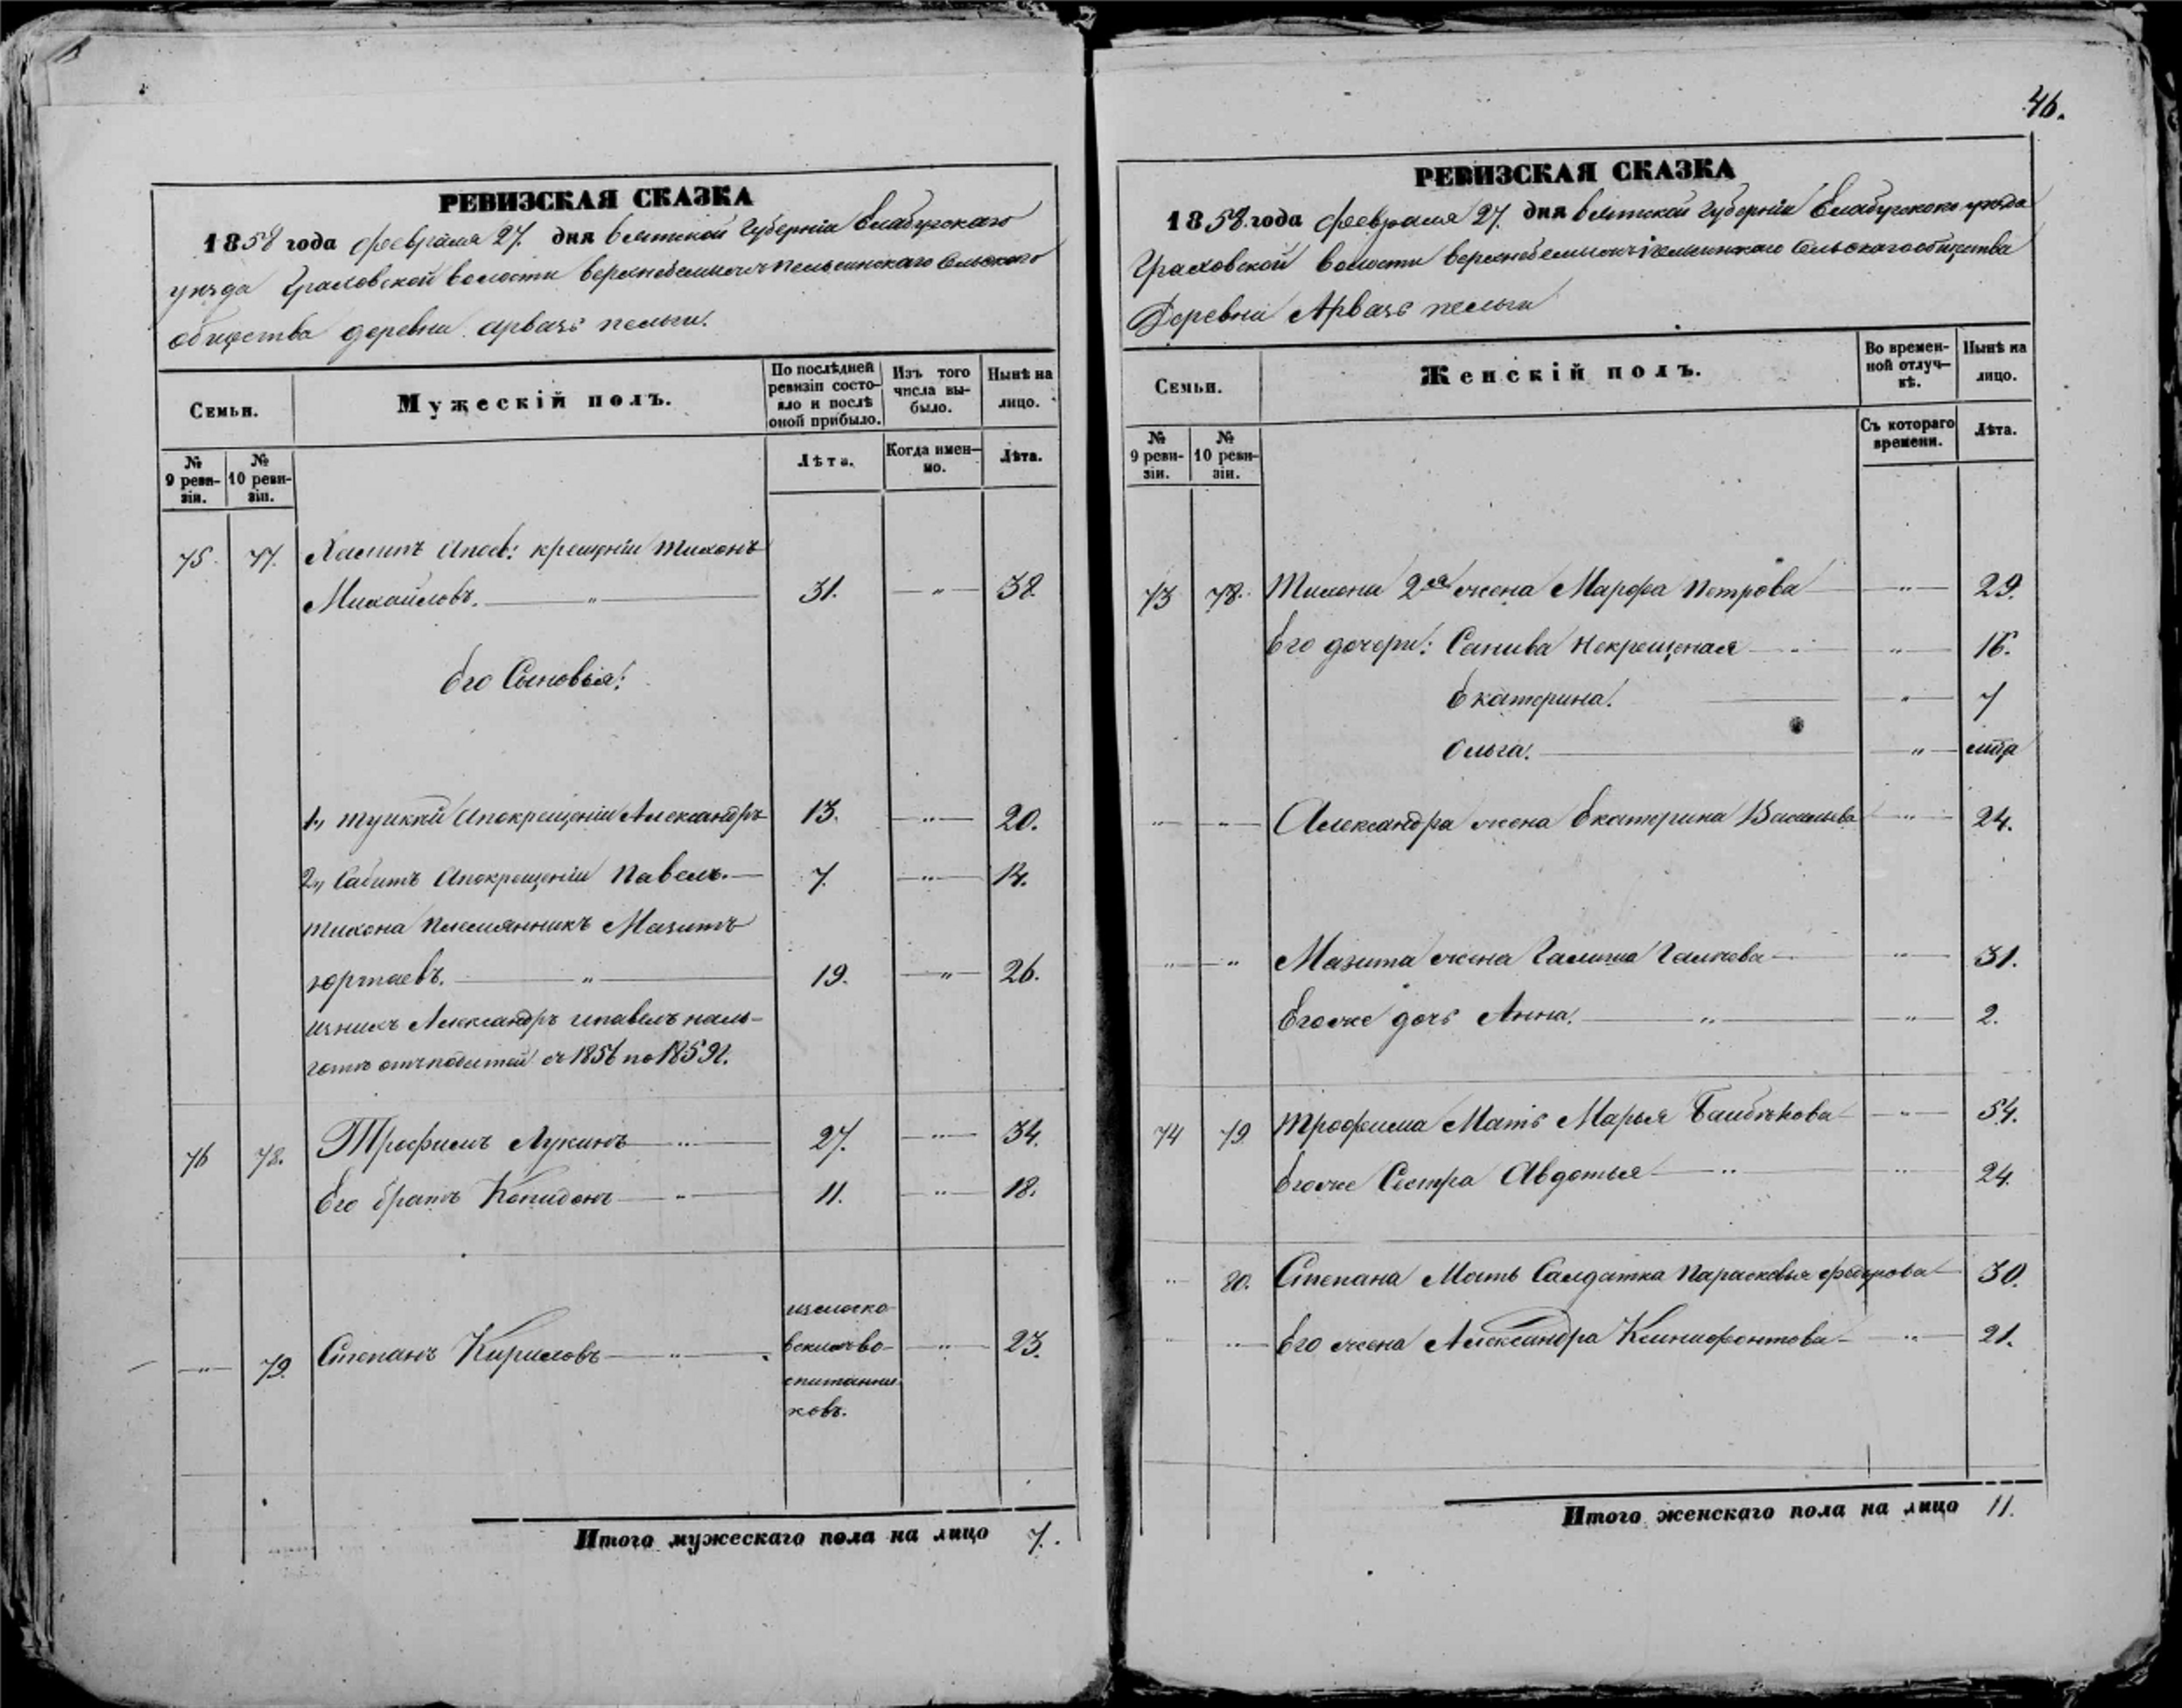 РЕВИЗСКАЯ СКАЗКА
1858 года февраля 27. дня Вятской Губерніи Елабугскаго
уѣзда Граховской волости
общества деревни Арвазь пельги.
Семьи.
Мужескій полъ.
По послѣдней ревизіи состояло и послѣ оной прибыло.
Изъ того числа выбыло.
Нынѣ на лицо.
№ 9 ревизіи.
№ 10 ревизіи.
Лѣта.
Когда именно.
Лѣта.
75. 77. крещеніи Тихонъ
Михайловъ. — " — 31. — " — 38.
Его Сыновья:
1., апокрещеніи Александръ 13. — " — 20.
2., Сабитъ апокрещеніи Павелъ. — 7. — " — 14.
Тихона племянникъ Мазитъ
Юртаевъ. — " — 19. — " — 26.
изнихъ Александръ ипавелъ наль-
готѣ отъ податей съ 1856 по 1859 г.
76 78. Трофимъ Лукинъ — " — 27. — " — 34.
Его братъ — " — 11. — " — 18.
— " — 79. Степанъ Кириловъ — " — — " — 23.
спитанни
ковъ.
Итого мужескаго пола на лицо 7.
46.
РЕВИЗСКАЯ СКАЗКА
1858 года февраля 27. дня Вятской Губерніи Елабугскаго уѣзда
Граховской волости Сельскаго общества
Деревни Арвазь пельги
Семьи.
Женскій полъ.
Во временной отлучкѣ.
Нынѣ на лицо.
№ 9 ревизіи.
№ 10 ревизіи.
Съ котораго времени.
Лѣта.
73 78. Тихона 2ая жена Марфа Петрова — " — 29.
Его дочери: некрещеная — " — 16.
Екатерина. — " — 7
Ольга. — " —
— " — — " — Александра жена Екатерина Васильева — " — 24.
— " — " Мазита жена — " — 31.
Егоже дочь Анна. — " — — " — 2.
74 79 Трофима Мать Марья — " — 54.
Егоже Сестра Авдотья — " — " — 24.
" 80. Степана Мать Салдатка Парасковья Федорова 50.
" — " — Его жена Александра Ксинофонтова — " — 21.
Итого женскаго пола на лицо 11.